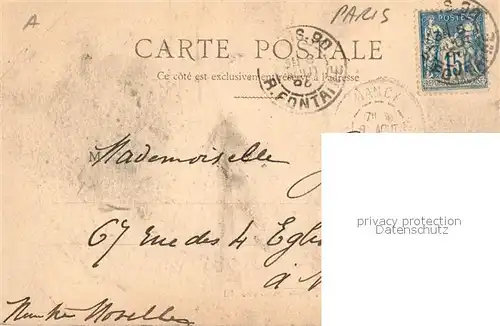 A
PARIS
CARTE POSTALE
Ce côté est exclusivement réservé à l'adresse
POSTE
15
R. FONTAINE
NANCY
Mademoiselle
67 rue des 4 Eglis
à N
Meurthe Moselle
privacy protection
Datenschutz